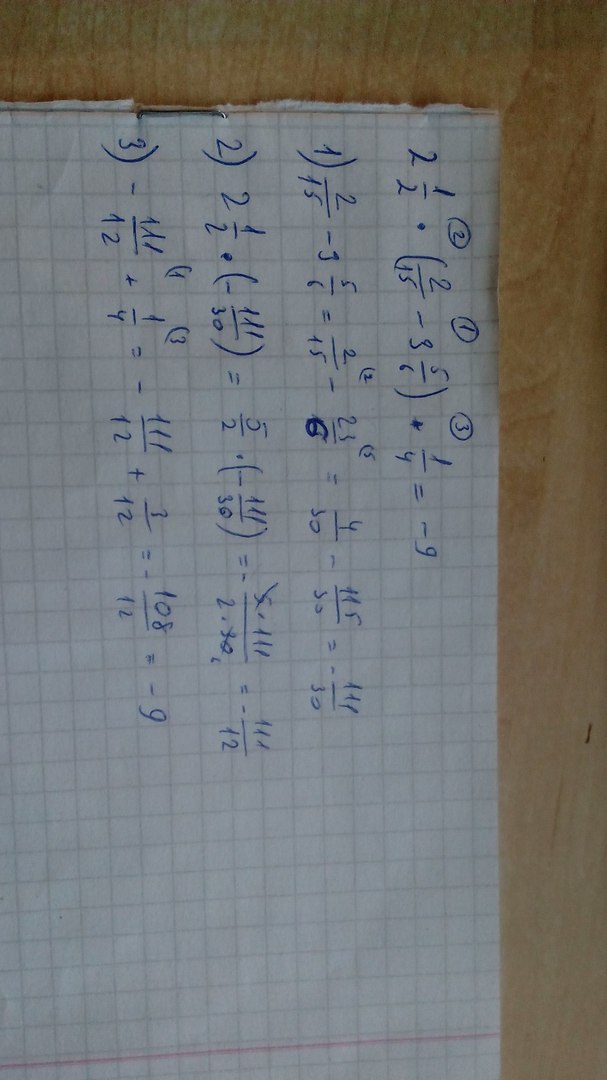 2 1/2 · (2/15 − 3 5/6) + 1/4 = −9
② ① ③
1) 2/15 − 3 5/6 = 2/15 (2 − 23/6 (5 = 4/30 − 115/30 = −111/30
2) 2 1/2 · (−111/30) = 5/2 · (−111/30) = −5·111/2·30 6 = −111/12
3) −111/12 (1 + 1/4 (3 = −111/12 + 3/12 = −108/12 = −9